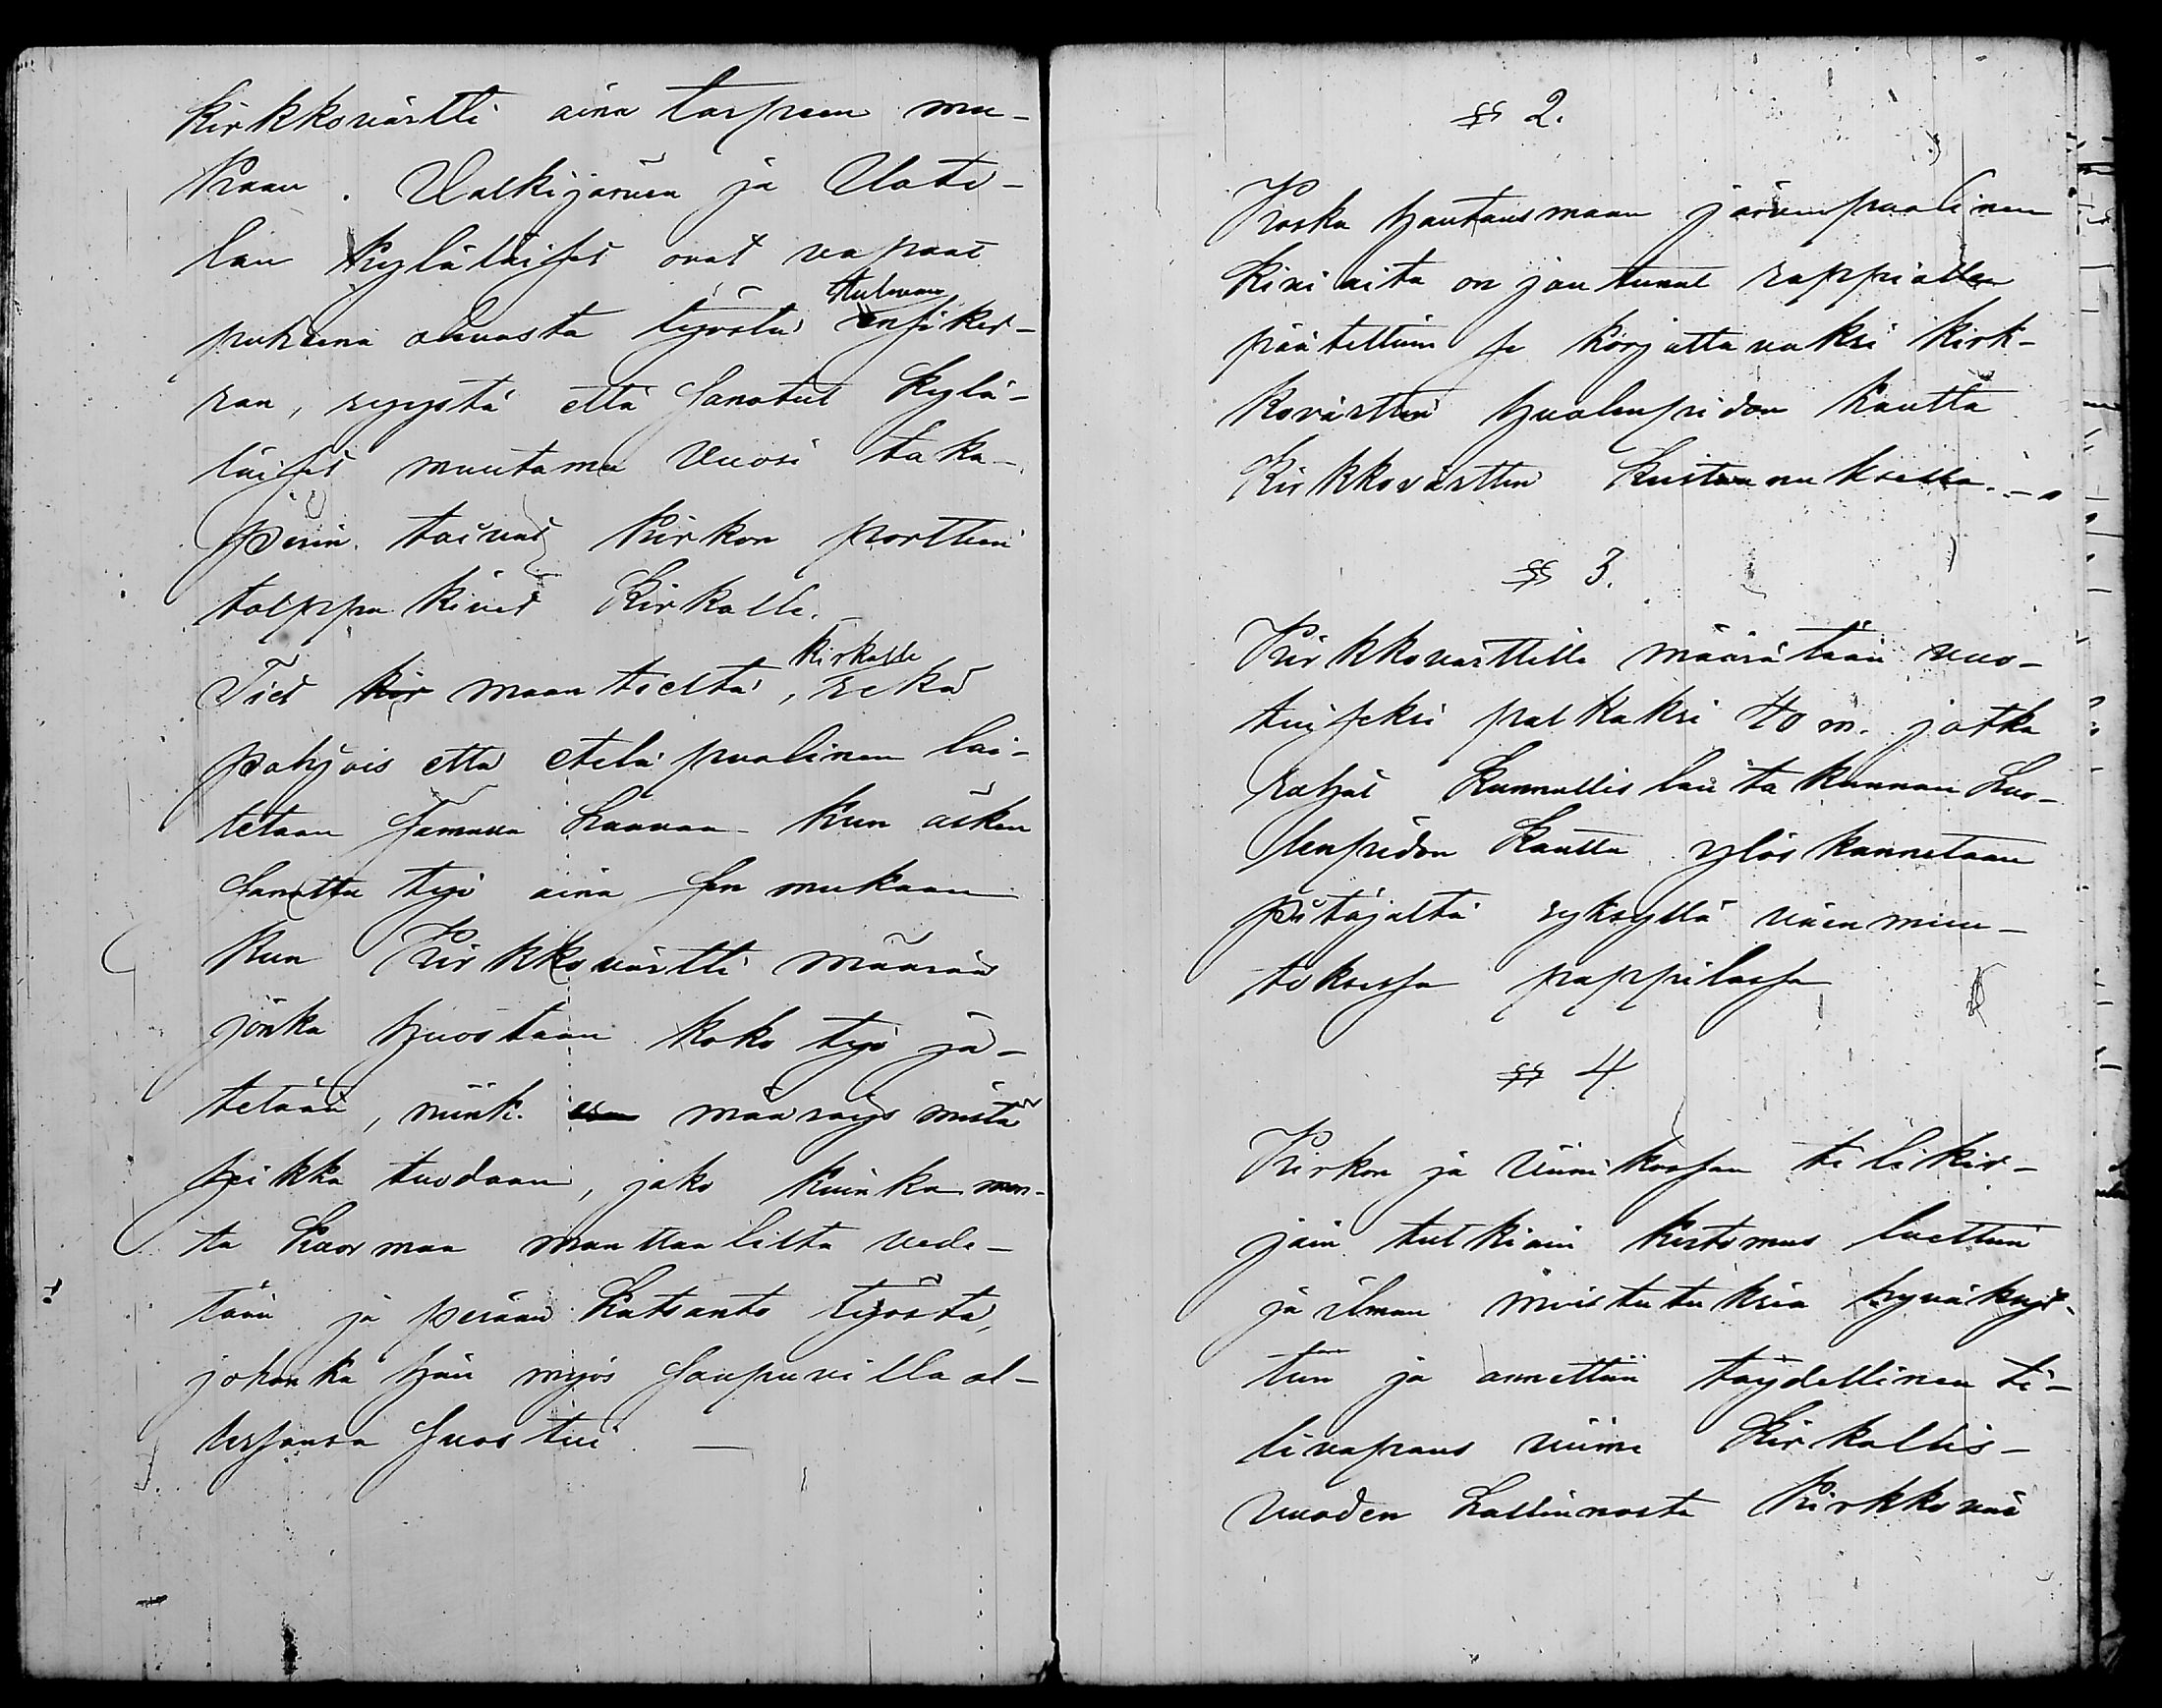 kirkkovärtti aina tarpeen mu-
kaan. Valkijärven ja Uoti-
lan kyläläiset ovat vapaat
tulevan
puheena olevasta työstä ensi ker-
ran, syystä että sanotut kylä-
läiset muutama vuosi taka-
perin toivat kirkon porttein
tolppa kivet Kirkolle.
kirkolle
Tiet kir maantieltä, sekä
pohjois että etelä puolinen lai-
tetaan samaan kaavaan kun äsken
sanottu työ aina sen mukaan
kun Kirkkovärtti määrää
jonka huostaan koko työ jä-
tetään, niink. määräys mistä
hiekka tuodaan, joko kuinka mon-
ta kuormaa manttaalilta vede-
tään ja perään katsanto työstä,
johonka hän myös saapuvilla ol-
lessansa suostui. —
§§ 2.
Koska hautausmaan järvenpuolinen
kiviaita on joutunut rappiolle
päätettiin se korjattavaksi kirk-
kovärttin huolenpidon kautta
Kirkkovärttin kustannuksella. —
§§ 3.
Kirkkovärttille määrätään vuo-
tuiseksi palkaksi 40 m. jotka
rahat Kunnallislautakunnan huo-
lenpidon kautta ylöskannetaan
pitäjältä syksyllä väenmuu-
toksessa pappilassa
§§ 4
Kirkon ja viinikassan tilikir-
jain tutkiain kertomus luettiin
ja ilman muistutuksia hyväksyt-
tiin ja annettiin täydellinen ti-
livapaus viime Kirkollis-
vuoden hallinnosta Kirkkovär